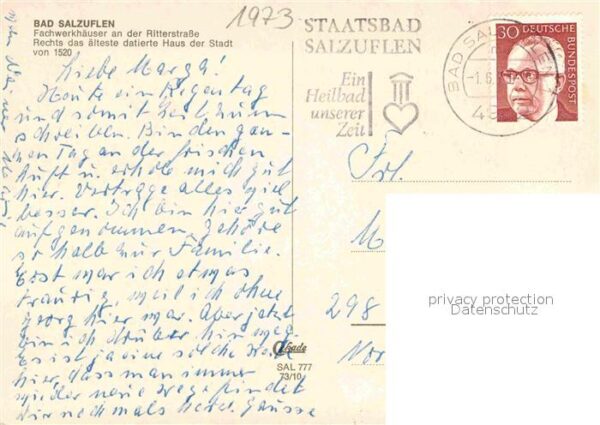 BAD SALZUFLEN
Fachwerkhäuser an der Ritterstraße
Rechts das älteste datierte Haus der Stadt
von 1520
1973
STAATSBAD
SALZUFLEN
Ein
Heilbad
unserer
Zeit
BAD SALZUFLEN
-1.6.
30 DEUTSCHE
BUNDESPOST
Liebe Marga!
Heute ein Regentag
und somit Zeit zum
schreiben. Bin den gan-
zen Tag an der frischen
Luft u. erhole mich gut
hier. Vertrage alles viel
besser. Ich bin hier gut
aufgenommen, gehöre
so halb zur Familie.
Erst war ich etwas
traurig, weil ich ohne
Georg hier war. Aber jetzt
bin ich drüber hinweg
Es ist ja eine solche
hier, dass man immer
wieder neue Wege findet
Dir nochmals herzl. Grüsse
Frl.
M
298
Nor
SAL 777
73/10
privacy protection
Datenschutz